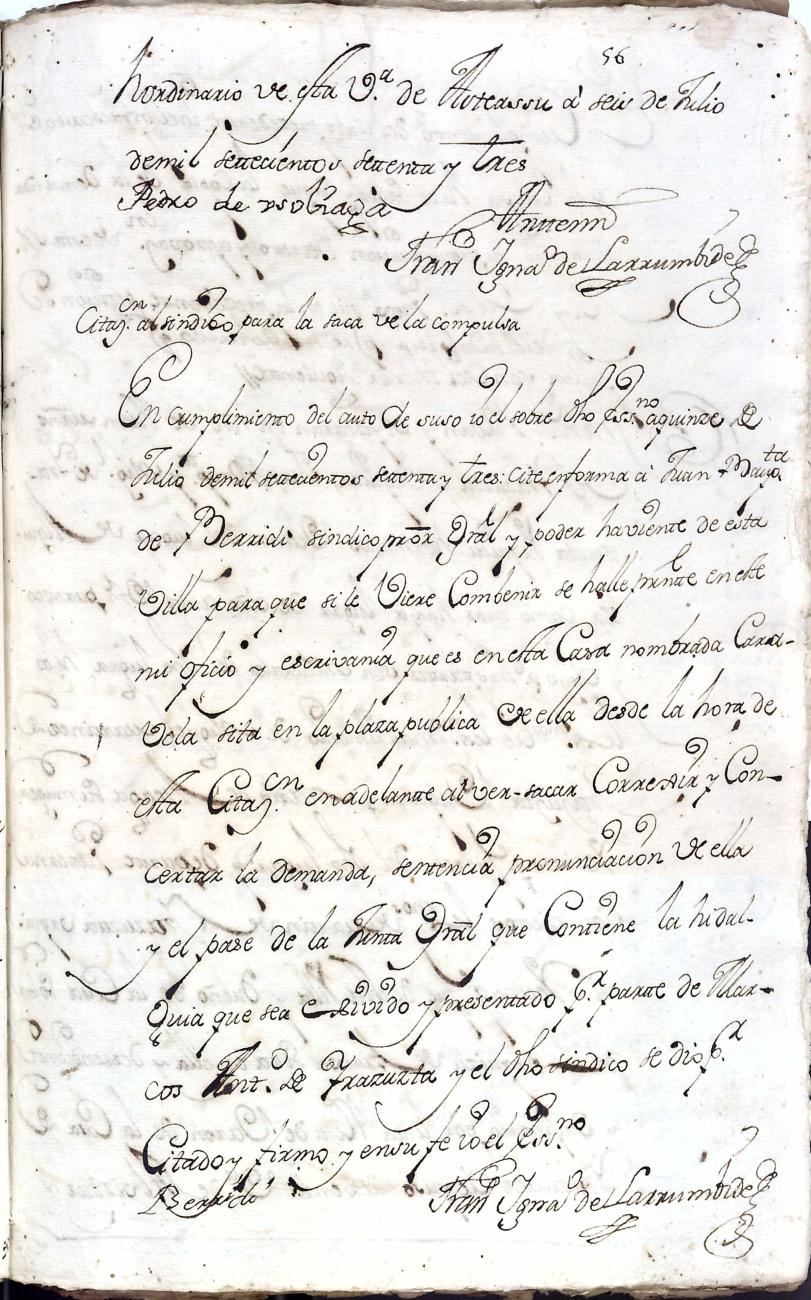 56
hordinario de esta V.ª de Asteassu à seis de Julio
demil settecientos settenta y tres
Pedro de usobiaga Anttemi
Fran.co Igna.o de Larrumbide
Citaz.on al sindico, para la saca de la compulsa
En Cumplimiento del auto de suso io el sobre dho Ess.no a quinze de
Julio demil settecientos settenta y tres: cite en forma à Juan Bap.ta
de Berridi sindico pror Gral y, poder haviente de esta
Villa para que si le Viere Combenir se halle presente en este
mi oficio y escrivania que es en esta Casa nombrada Carra-
Vela sita en la plaza publica de ella desde la hora de
esta Citaz.on en adelante al ver-sacar Correxir y Con-
certar la demanda, sentencia pronunciacion de ella
y el pase de la Junta Gral que Contiene la hidal-
Guia que sea exivido y presentado p.r parte de Mar-
cos Ant.o de Irazuzta y el dho sindico se dio p.r
Citado y firmo y en su fe io el Ess.no
Berridi Fran.co Igna.o de Larrumbide